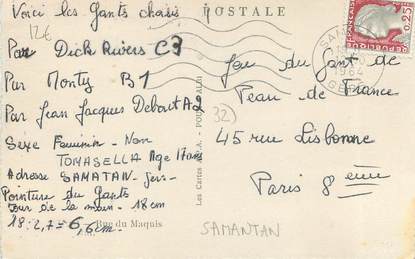 Voici les Gants choisis
POSTALE
12€
Par Dick Rivers C3
Par Monty B1
Par Jean Jacques Debout A2
Sexe Feminin - Nom
TOMASELLA Age 17ans
Adresse SAMATAN Gers
Pointure du Gants
Tour de la main - 18cm
18:2,7=6,6cm
Rue du Maquis
Les Cartes
32
Jeu du Gant de
Peau de France
45 rue Lisbonne
Paris 8eme
SAMANTAN
0,25
REPUBLIQUE
1964